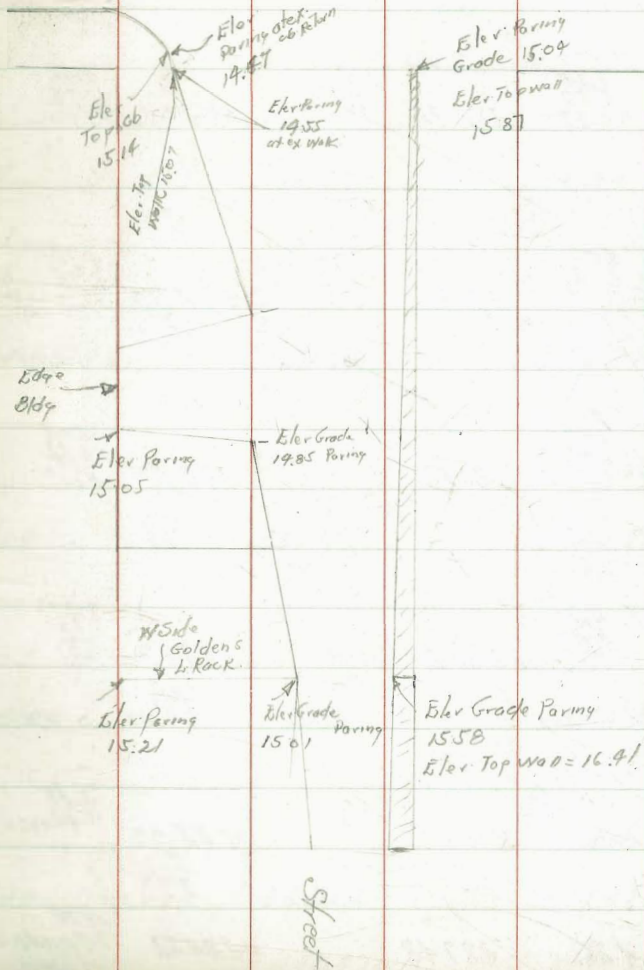 Elev
Paving at ex.
cb Return
14.47
Elev Paving
Grade 15.04
Elev Top wall
15.87
Elev
Top cb
15.14
Elev Paving
14.55
at ex walk
Elev. Top
Walk
Edge
Bldg
Elev Grade
14.85 Paving
Elev Paving
15.05
W Side
Goldens
Elev Paving
15.21
Elev Grade
Paving
15.01
Elev Grade Paving
15.58
Elev Top wall = 16.41
Street